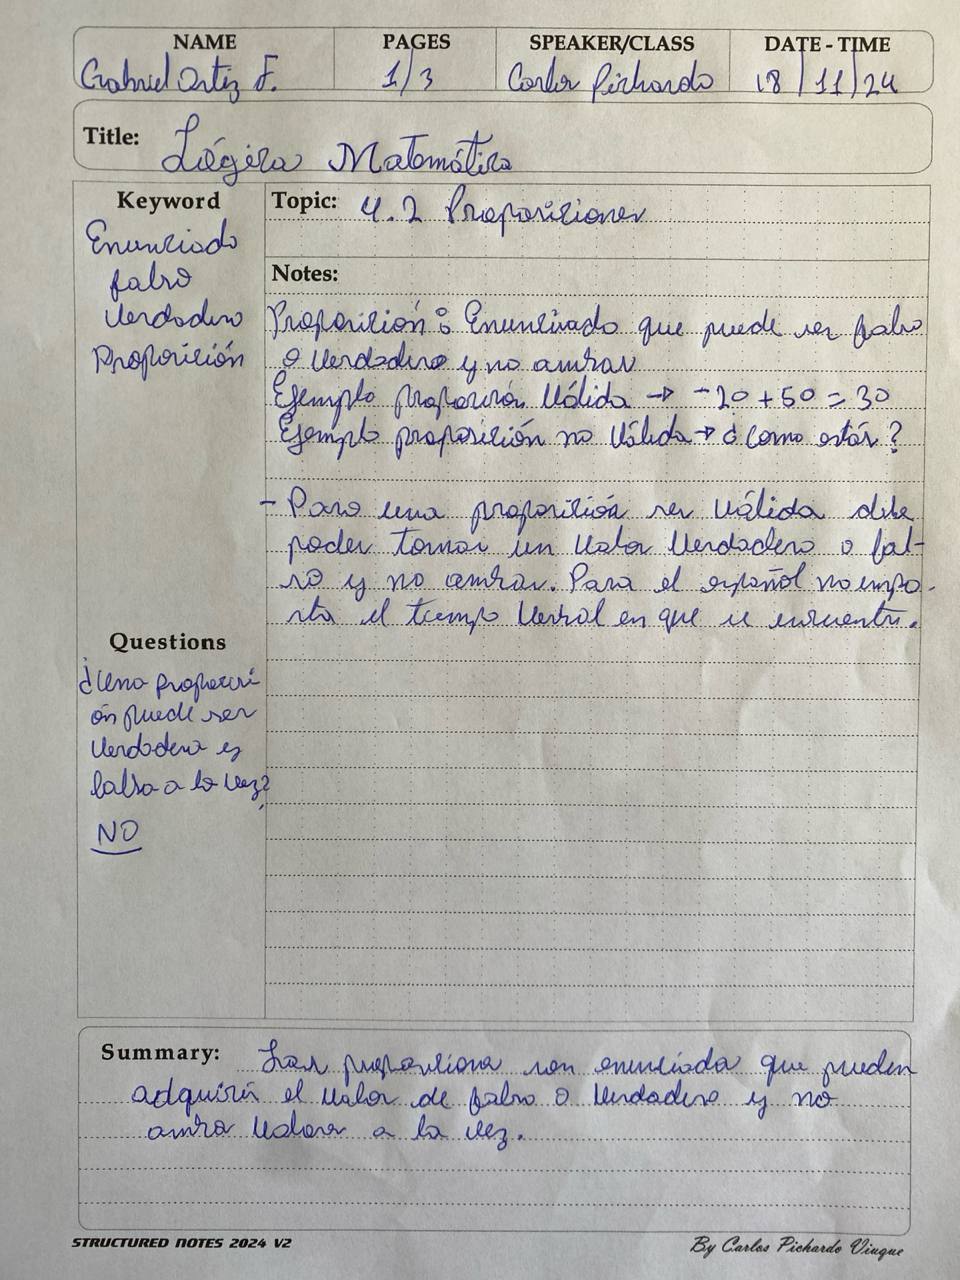 NAME PAGES SPEAKER/CLASS DATE - TIME
Gabriel Ortiz F. 1/3 Carlos Pichardo 18/11/24
Title: Lógica Matemática
Keyword
Enunciado
falso
Verdadero
Proposición
Topic: 4.2 Proposiciones
Notes:
Proposición: Enunciado que puede ser falso
o verdadero y no ambas
Ejemplo proposición válida → -20 + 50 = 30
Ejemplo proposición no válida → ¿como estás?
- Para una proposición ser válida debe
poder tomar un valor verdadero o fal-
so y no ambas. Para el español no impo-
rta el tiempo verbal en que se encuentre.
Questions
¿Una proposici
ón puede ser
verdadera y
falsa a la vez?
NO
Summary: Las proposiciones son enunciados que pueden
adquirir el valor de falso o verdadero y no
ambos valores a la vez.
STRUCTURED NOTES 2024 V2
By Carlos Pichardo Viuque